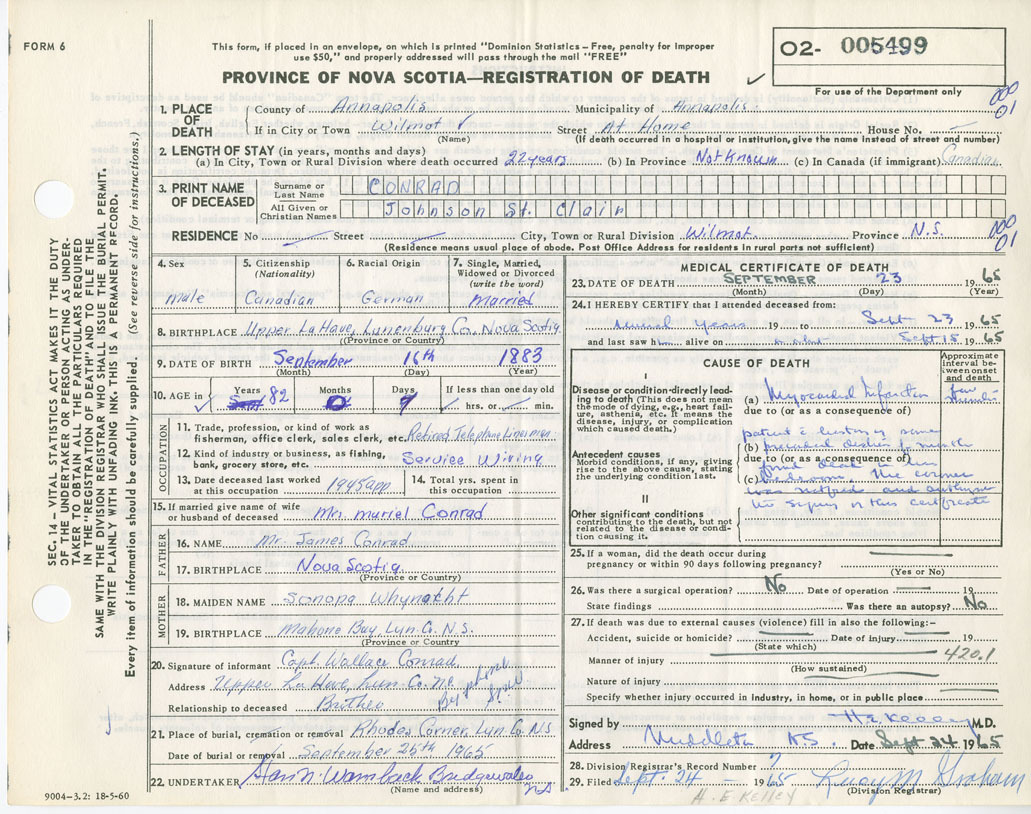 FORM 6
This form, if placed in an envelope, on which is printed "Dominion Statistics – Free, penalty for improper
use $50," and properly addressed will pass through the mail "FREE"
PROVINCE OF NOVA SCOTIA—REGISTRATION OF DEATH ✓
O2- 005499
For use of the Department only
000
01
1. PLACE OF DEATH
County of Annapolis Municipality of Annapolis
If in City or Town Wilmot ✓ Street At Home House No.
(Name) (If death occurred in a hospital or institution, give the name instead of street and number)
2. LENGTH OF STAY (in years, months and days)
(a) In City, Town or Rural Division where death occurred 22 years (b) In Province Not Known (c) In Canada (if immigrant) Canadian
3. PRINT NAME OF DECEASED
Surname or Last Name CONRAD
All Given or Christian Names Johnson St. Clair
RESIDENCE No Street City, Town or Rural Division Wilmot Province N.S.
000
01
(Residence means usual place of abode. Post Office Address for residents in rural parts not sufficient)
4. Sex
Male
5. Citizenship (Nationality)
Canadian
6. Racial Origin
German
7. Single, Married, Widowed or Divorced (write the word)
Married
8. BIRTHPLACE Upper LaHave, Lunenburg Co. Nova Scotia
(Province or Country)
9. DATE OF BIRTH September 16th 1883
(Month) (Day) (Year)
10. AGE in ✓ Years 82 Months 0 Days 7 If less than one day old
hrs. or min.
OCCUPATION
11. Trade, profession, or kind of work as
fisherman, office clerk, sales clerk, etc. Retired Telephone Lineman
12. Kind of industry or business, as fishing,
bank, grocery store, etc. Service Wiring
13. Date deceased last worked
at this occupation 1945 app
14. Total yrs. spent in
this occupation
15. If married give name of wife
or husband of deceased Mrs. Muriel Conrad
FATHER
16. NAME Mr. James Conrad
17. BIRTHPLACE Nova Scotia
(Province or Country)
MOTHER
18. MAIDEN NAME Sonopa Whynacht
19. BIRTHPLACE Mahone Bay, Lun. Co. N.S.
(Province or Country)
20. Signature of informant Capt. Wallace Conrad
Address Upper La Have, Lun. Co. N.S.
Relationship to deceased Brother
By phone
21. Place of burial, cremation or removal Rhodes Corner, Lun. Co. N.S.
Date of burial or removal September 25th 1965
22. UNDERTAKER Wambach Bridgewater N.S.
(Name and address)
9004-3.2: 18-5-60
MEDICAL CERTIFICATE OF DEATH
23. DATE OF DEATH SEPTEMBER 23 1965
(Month) (Day) (Year)
24. I HEREBY CERTIFY that I attended deceased from:
Years 19 to Sept 23 1965
and last saw h alive on Sept 15 1965
CAUSE OF DEATH
Approximate interval between onset and death
I
Disease or condition directly leading to death (This does not mean the mode of dying, e.g., heart failure, asthenia, etc. It means the disease, injury, or complication which caused death.)
(a) Myocardial Infarction few
due to (or as a consequence of)
Antecedent causes
Morbid conditions, if any, giving rise to the above cause, stating the underlying condition last.
patient history of some
(b) previous
due to (or as a consequence of)
found dead in his
(c) bedroom. The coroner
was notified and
the signing of this certificate
II
Other significant conditions contributing to the death, but not related to the disease or condition causing it.
25. If a woman, did the death occur during
pregnancy or within 90 days following pregnancy?
(Yes or No)
26. Was there a surgical operation? No Date of operation 19
State findings Was there an autopsy? No
27. If death was due to external causes (violence) fill in also the following:–
Accident, suicide or homicide? Date of injury 19
(State which)
420.1
Manner of injury
(How sustained)
Nature of injury
Specify whether injury occurred in industry, in home, or in public place
Signed by H E Kelley M.D.
Address Middleton N.S. Date Sept 24 1965
28. Division Registrar's Record Number 7
29. Filed Sept. 24 1965 Lucy M Graham
(Division Registrar)
H. E KELLEY
SEC. 14 – VITAL STATISTICS ACT MAKES IT THE DUTY
OF THE UNDERTAKER OR PERSON ACTING AS UNDER-
TAKER TO OBTAIN ALL THE PARTICULARS REQUIRED
IN THE "REGISTRATION OF DEATH" AND TO FILE THE
SAME WITH THE DIVISION REGISTRAR WHO SHALL ISSUE THE BURIAL PERMIT.
WRITE PLAINLY WITH UNFADING INK. THIS IS A PERMANENT RECORD.
Every item of information should be carefully supplied. (See reverse side for instructions.)